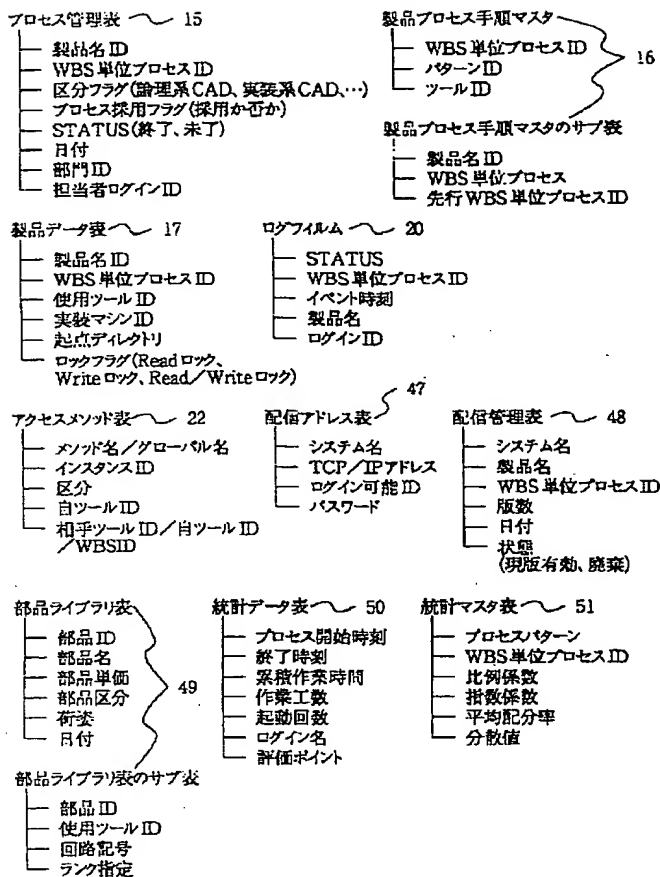 プロセス管理表 15
製品名ID
WBS単位プロセスID
区分フラグ(論理系CAD、実装系CAD、…)
プロセス採用フラグ(採用か否か)
STATUS(終了、未了)
日付
部門ID
担当者ログインID
製品プロセス手順マスタ
WBS単位プロセスID
パターンID
ツールID
16
製品プロセス手順マスタのサブ表
製品名ID
WBS単位プロセス
先行WBS単位プロセスID
製品データ表 17
製品名ID
WBS単位プロセスID
使用ツールID
実装マシンID
起点ディレクトリ
ロックフラグ(Readロック、
Writeロック、Read/Writeロック)
ログフィルム 20
STATUS
WBS単位プロセスID
イベント時刻
製品名
ログインID
アクセスメソッド表 22
メソッド名/グローバル名
インスタンスID
区分
自ツールID
相手ツールID/自ツールID
/WBSID
配信アドレス表 47
システム名
TCP/IPアドレス
ログイン可能ID
パスワード
配信管理表 48
システム名
製品名
WBS単位プロセスID
版数
日付
状態
(現版有効、廃棄)
部品ライブラリ表
部品ID
部品名
部品単価
部品区分
荷姿
日付
49
部品ライブラリ表のサブ表
部品ID
使用ツールID
回路記号
ランク指定
統計データ表 50
プロセス開始時刻
終了時刻
累積作業時間
作業工数
起動回数
ログイン名
評価ポイント
統計マスタ表 51
プロセスパターン
WBS単位プロセスID
比例係数
指数係数
平均配分率
分散値